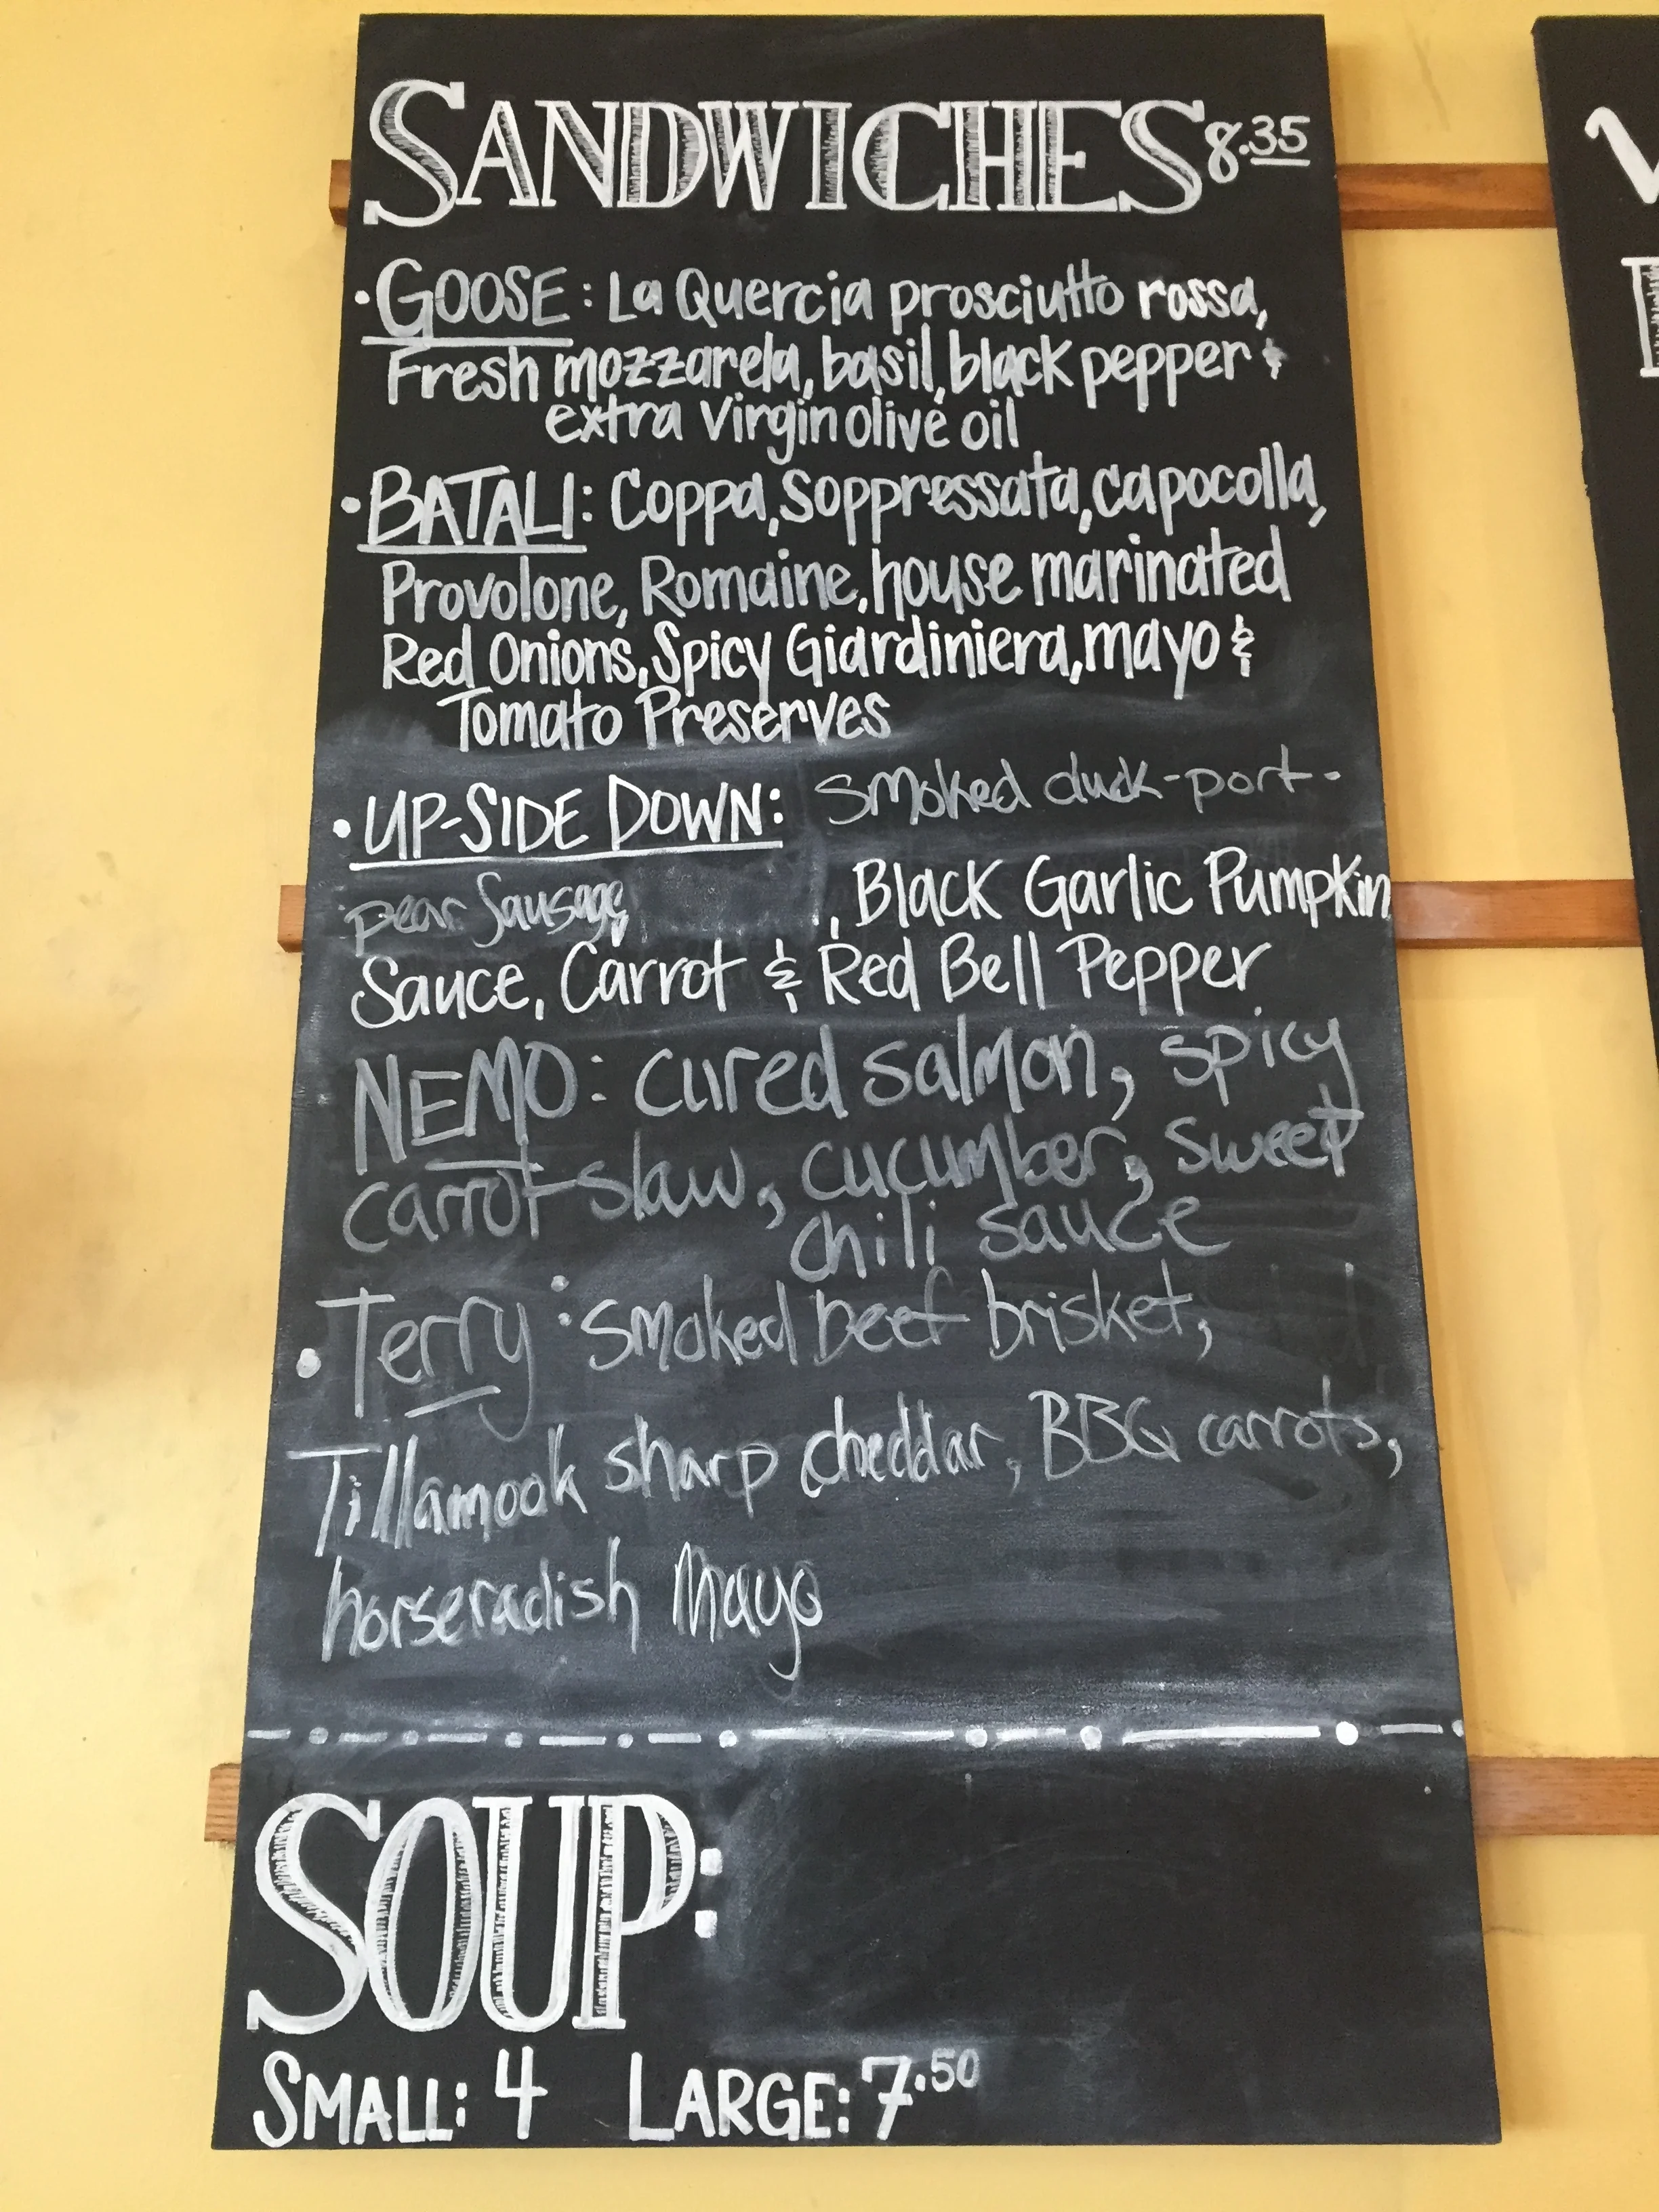 SANDWICHES 8.35
• GOOSE: La Quercia prosciutto rossa,
Fresh mozzarela, basil, black pepper &
extra virgin olive oil
• BATALI: Coppa, Soppressata, capocolla,
Provolone, Romaine, house marinated
Red Onions, Spicy Giardiniera, mayo &
Tomato Preserves
• UP-SIDE DOWN: Smoked duck-port-
pear Sausage, , Black Garlic Pumpkin
Sauce, Carrot & Red Bell Pepper
NEMO: cured salmon, spicy
carrot slaw, cucumber, sweet
chili sauce
• Terry: smoked beef brisket,
Tillamook sharp cheddar, BBQ carrots,
horseradish Mayo
SOUP:
SMALL: 4 LARGE: 7.50